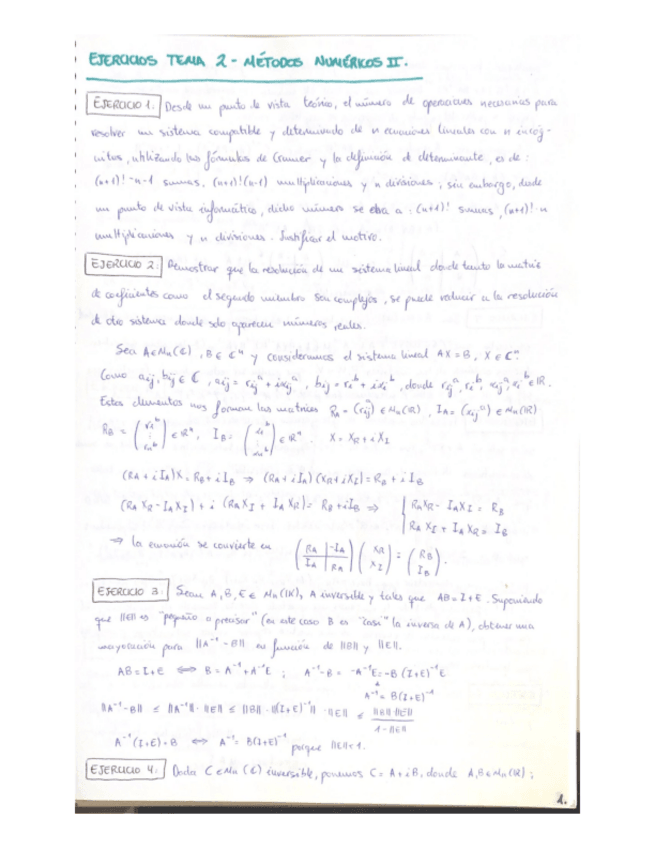 EJERCICIOS TEMA 2 - MÉTODOS NUMÉRICOS II.
EJERCICIO 1. Desde un punto de vista teórico, el número de operaciones necesarias para
resolver un sistema compatible y determinado de n ecuaciones lineales con n incóg-
nitas, utilizando las fórmulas de Cramer y la definición de determinante, es de:
(n+1)! -n-1 sumas, (n+1)!(n-1) multiplicaciones y n divisiones; sin embargo, desde
un punto de vista informático, dicho número se eleva a: (n+1)! sumas, (n+1)! n
multiplicaciones y n divisiones. Justificar el motivo.
EJERCICIO 2: Demostrar que la resolución de un sistema lineal donde tanto la matriz
de coeficientes como el segundo miembro son complejos, se puede reducir a la resolución
de otro sistema donde solo aparecen números reales.
Sea A∈Mn(ℂ), B∈ℂⁿ y consideramos el sistema lineal AX=B, X∈ℂⁿ.
Como aij, bij ∈ ℂ, aij = rijᵃ + ixijᵃ, bij = riᵇ + ixiᵇ, donde rijᵃ, riᵇ, xijᵃ, xiᵇ ∈ℝ.
Estos elementos nos forman las matrices RA = (rijᵃ) ∈ Mn(ℝ), IA = (xijᵃ) ∈ Mn(ℝ)
RB = ( ⋮ ) ∈ ℝⁿ, IB = ( ⋮ ) ∈ ℝⁿ. X = XR + i XI
(RA + i IA)X = RB + i IB ⇒ (RA + i IA)(XR + i XI) = RB + i IB
(RA XR - IA XI) + i (RA XI + IA XR) = RB + i IB ⇒ { RA XR - IA XI = RB
RA XI + IA XR = IB
⇒ la ecuación se convierte en (RA | -IA / IA | RA) (XR / XI) = (RB / IB).
EJERCICIO 3: Sean A, B, E ∈ Mn(ℝ), A inversible y tales que AB = I+E. Suponiendo
que ||E|| es "pequeño a precisar" (en este caso B es "casi" la inversa de A), obtener una
mayoración para ||A⁻¹ - B|| en función de ||B|| y ||E||.
AB = I+E ⟺ B = A⁻¹ + A⁻¹E ; A⁻¹-B = -A⁻¹E = -B (I+E)⁻¹E
A⁻¹ = B(I+E)⁻¹
||A⁻¹-B|| ≤ ||A⁻¹|| · ||E|| ≤ ||B|| · ||(I+E)⁻¹|| · ||E|| ≤ ||B||·||E|| / 1-||E||
A⁻¹(I+E) = B ⟺ A⁻¹ = B(I+E)⁻¹ porque ||E||<1.
EJERCICIO 4: Dada C∈Mn(ℂ) inversible, ponemos C = A+iB, donde A,B∈Mn(ℝ);
1.